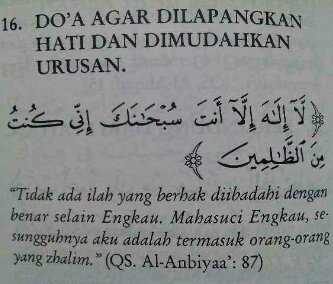 16. DO'A AGAR DILAPANGKAN
HATI DAN DIMUDAHKAN
URUSAN.
﴿ لَّآ إِلَٰهَ إِلَّآ أَنتَ سُبْحَٰنَكَ إِنِّي كُنتُ
مِنَ ٱلظَّٰلِمِينَ ﴾
"Tidak ada ilah yang berhak diibadahi dengan
benar selain Engkau. Mahasuci Engkau, se-
sungguhnya aku adalah termasuk orang-orang
yang zhalim." (QS. Al-Anbiyaa': 87)